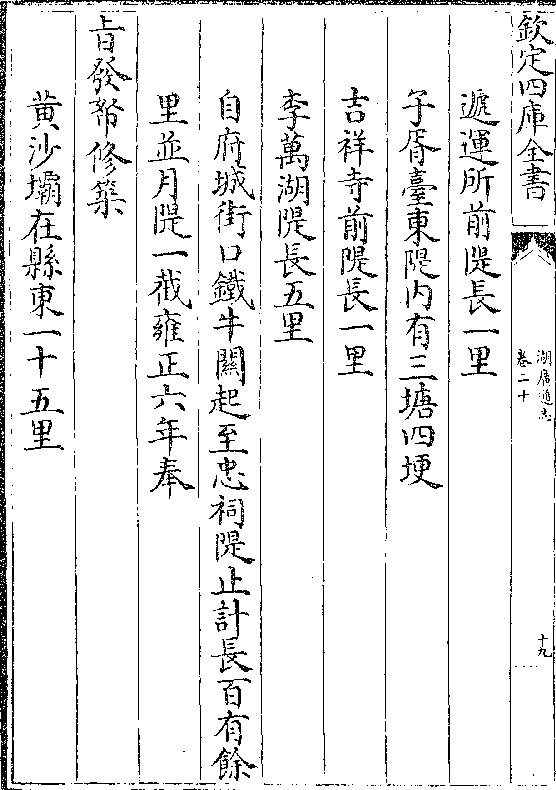 欽定四庫全書
湖廣通志
卷二十
十九
遞運所前隄長一里
子胥臺東隄内有三塘四埂
吉祥寺前隄長一里
李萬湖隄長五里
自府城街口鐵牛關起至忠祠隄止計長百有餘
里並月隄一截雍正六年奉
旨發帑修築
黄沙壩在縣東一十五里